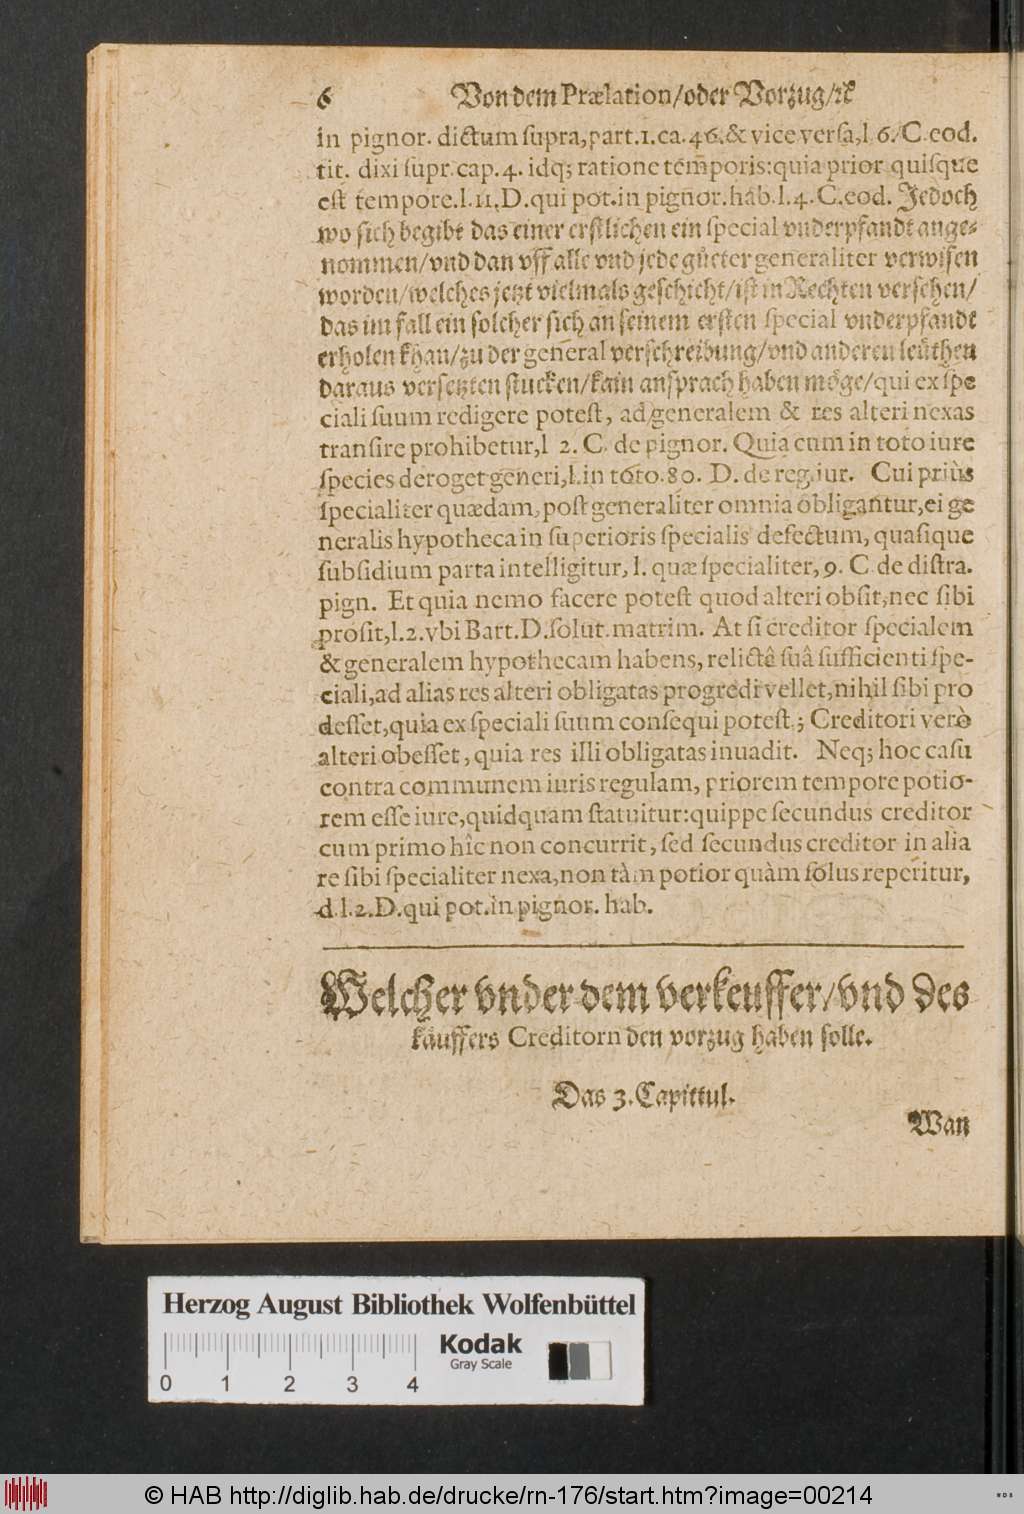 6 Von dem Prælation/oder Vorzug/ꝛc
in pignor. dictum supra, part.1.ca.46.& vice versa,l.6.C.eod.
tit. dixi supr.cap.4. idq; ratione tem̃poris:quia prior quisque
est tempore.l.11.D.qui pot.in pignor.hab.l.4.C.eod. Jedoch
wo sich begibt das einer erstlichen ein special vnderpfandt ange-
nommen/vnd dan vff alle vnd jede güeter generaliter verwisen
worden/welches jetzt vielmals geschicht/ist in Rechten versehen/
das im fall ein solcher sich an seinem ersten special vnderpfandt
erholen khan/zu der general verschreibung/vnd anderen leüthen
daraus versetzten stucken/kain ansprach haben möge/qui ex spe
ciali suum redigere potest, ad generalem & res alteri nexas
transire prohibetur,l 2. C. de pignor. Quia cum in toto iure
species deroget generi,l.in toto.80. D. de reg.iur. Cui priùs
specialiter quædam,post generaliter omnia obligantur,ei ge
neralis hypotheca in superioris specialis defectum, quasique
subsidium parta intelligitur, l. quæ specialiter, 9. C.de distra.
pign. Et quia nemo facere potest quod alteri obsit,nec sibi
prosit,l.2.vbi Bart.D.solut.matrim. At si creditor specialem
& generalem hypothecam habens, relictâ suâ sufficienti spe-
ciali,ad alias res alteri obligatas progredi vellet,nihil sibi pro
desset,quia ex speciali suum consequi potest; Creditori verò
alteri obesset, quia res illi obligatas inuadit. Neq; hoc casu
contra communem iuris regulam, priorem tempore potio-
rem esse iure,quidquam statuitur:quippe secundus creditor
cum primo hîc non concurrit, sed secundus creditor in alia
re sibi specialiter nexa,non tàm potior quàm solus reperitur,
d.l.2.D.qui pot.in pignor. hab.
Welcher vnder dem verkeuffer/vnd des
käuffers Creditorn den vorzug haben solle.
Das 3.Capittul.
Wan
Herzog August Bibliothek Wolfenbüttel
Kodak
Gray Scale
0 1 2 3 4
© HAB http://diglib.hab.de/drucke/rn-176/start.htm?image=00214